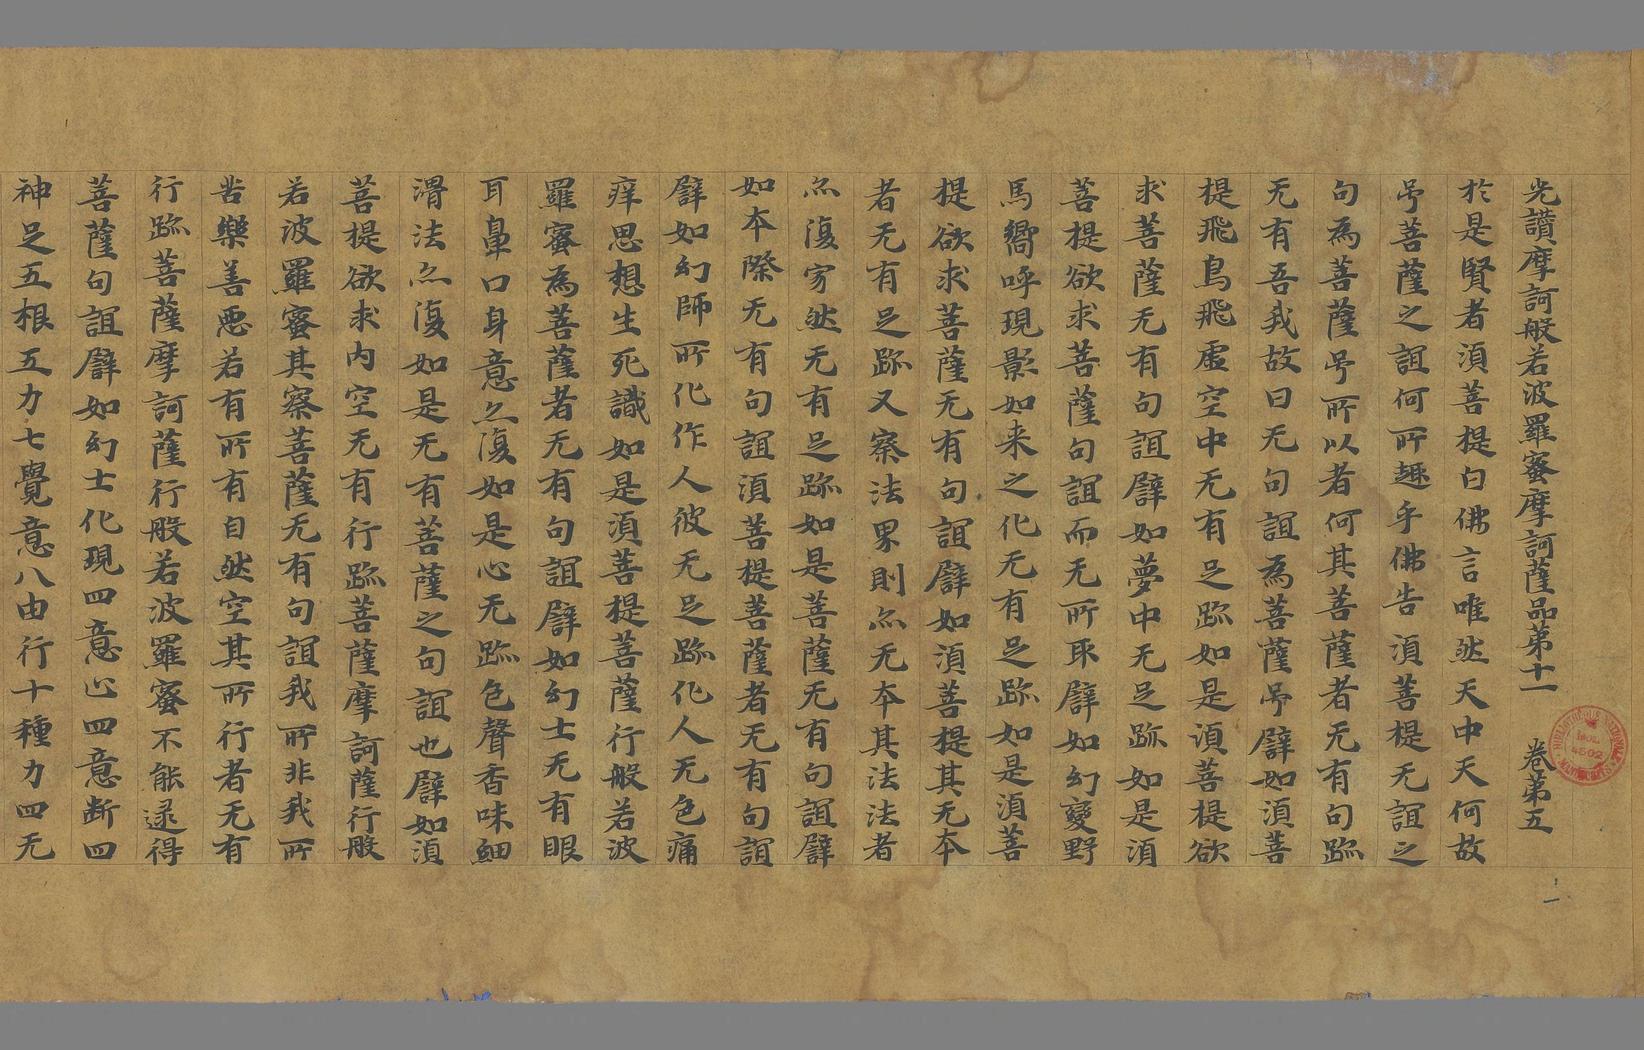 光讃摩訶般若波羅蜜摩訶薩品第十一 卷第五
於是賢者湏菩提白佛言唯然天中天何故
号菩薩之誼何所趣乎佛告湏菩提无誼之
句為菩薩号所以者何其菩薩者无有句跡
无有吾我故曰无句誼為菩薩号譬如湏菩
提飛鳥飛虛空中无有足跡如是湏菩提欲
求菩薩无有句誼譬如夢中无足跡如是湏
菩提欲求菩薩句誼而无所取譬如幻變野
馬嚮呼現影如来之化无有足跡如是湏菩
提欲求菩薩无有句誼譬如湏菩提其无本
者无有足跡又察法界則亦无本其法法者
亦復寂然无有足跡如是菩薩无有句誼譬
如本際无有句誼湏菩提菩薩者无有句誼
譬如幻師所化作人彼无足跡化人无色痛
痒思想生死識如是湏菩提菩薩行般若波
羅蜜為菩薩者无有句誼譬如幻士无有眼
耳鼻口身意亦復如是心无跡色聲香味細
滑法亦復如是无有菩薩之句誼也譬如湏
菩提欲求内空无有行跡菩薩摩訶薩行般
若波羅蜜其察菩薩无有句誼我所非我所
苦樂善惡若有所有自然空其所行者无有
行跡菩薩摩訶薩行般若波羅蜜不能逮得
菩薩句誼譬如幻士化現四意止四意断四
神足五根五力七覺意八由行十種力四无
BIBLIOTHÈQUE NATIONALE
4502
MANUSCRITS